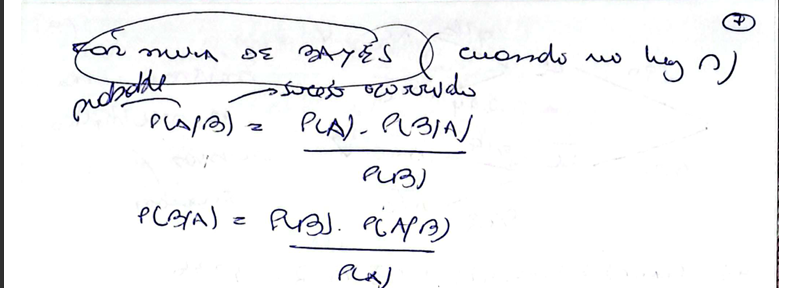 7
FÓRMULA DE BAYES (cuando no hay ∩)
probable → suceso ocurrido
P(A/B) = P(A) . P(B/A)
P(B)
P(B/A) = P(B) . P(A/B)
P(A)